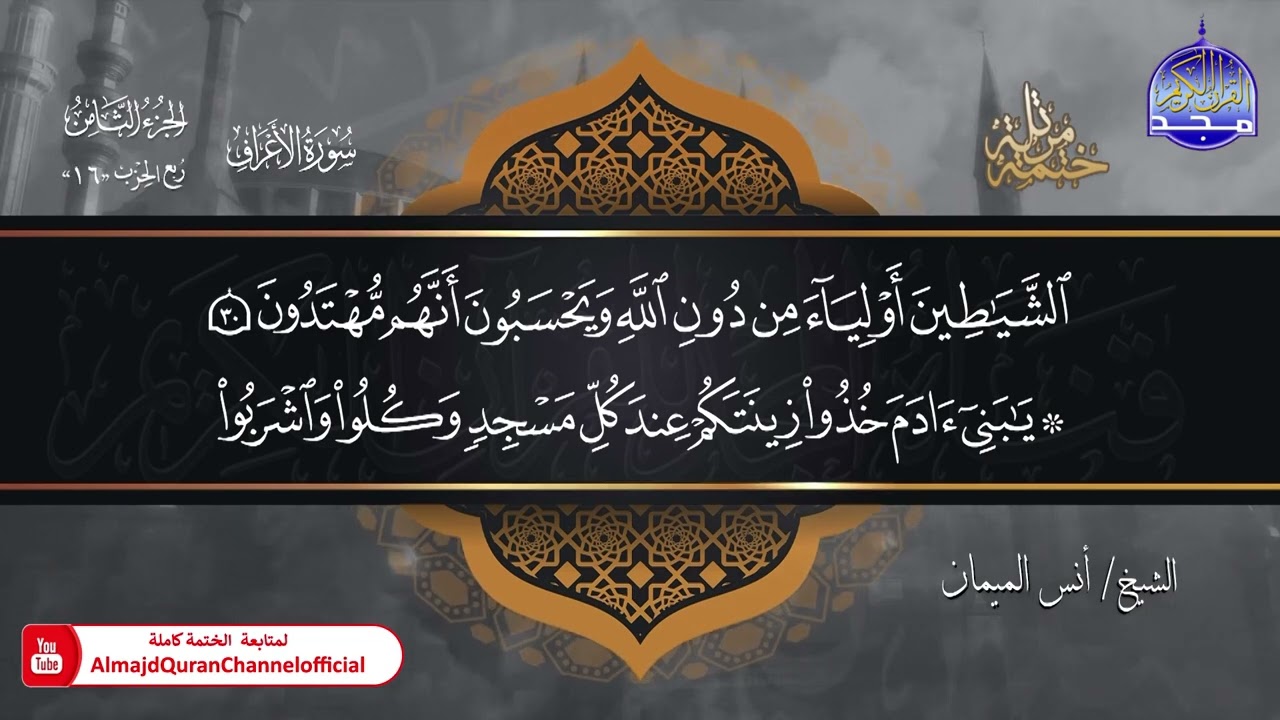 القرآن الكريم
مجد
ختمة مرتلة
سُورَةُ الأَعْرَافِ
الجُزْءُ الثَّامِنُ
رُبع الحِزْب «١٦»
ٱلشَّيَٰطِينَ أَوْلِيَآءَ مِن دُونِ ٱللَّهِ وَيَحْسَبُونَ أَنَّهُم مُّهْتَدُونَ ٣٠
۞ يَٰبَنِىٓ ءَادَمَ خُذُوا۟ زِينَتَكُمْ عِندَ كُلِّ مَسْجِدٍ وَكُلُوا۟ وَٱشْرَبُوا۟
الشيخ/ أنس الميمان
You
Tube
لمتابعة الختمة كاملة
AlmajdQuranChannelofficial